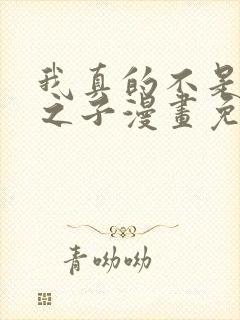 我真的不是
之子漫畫免
青呦呦